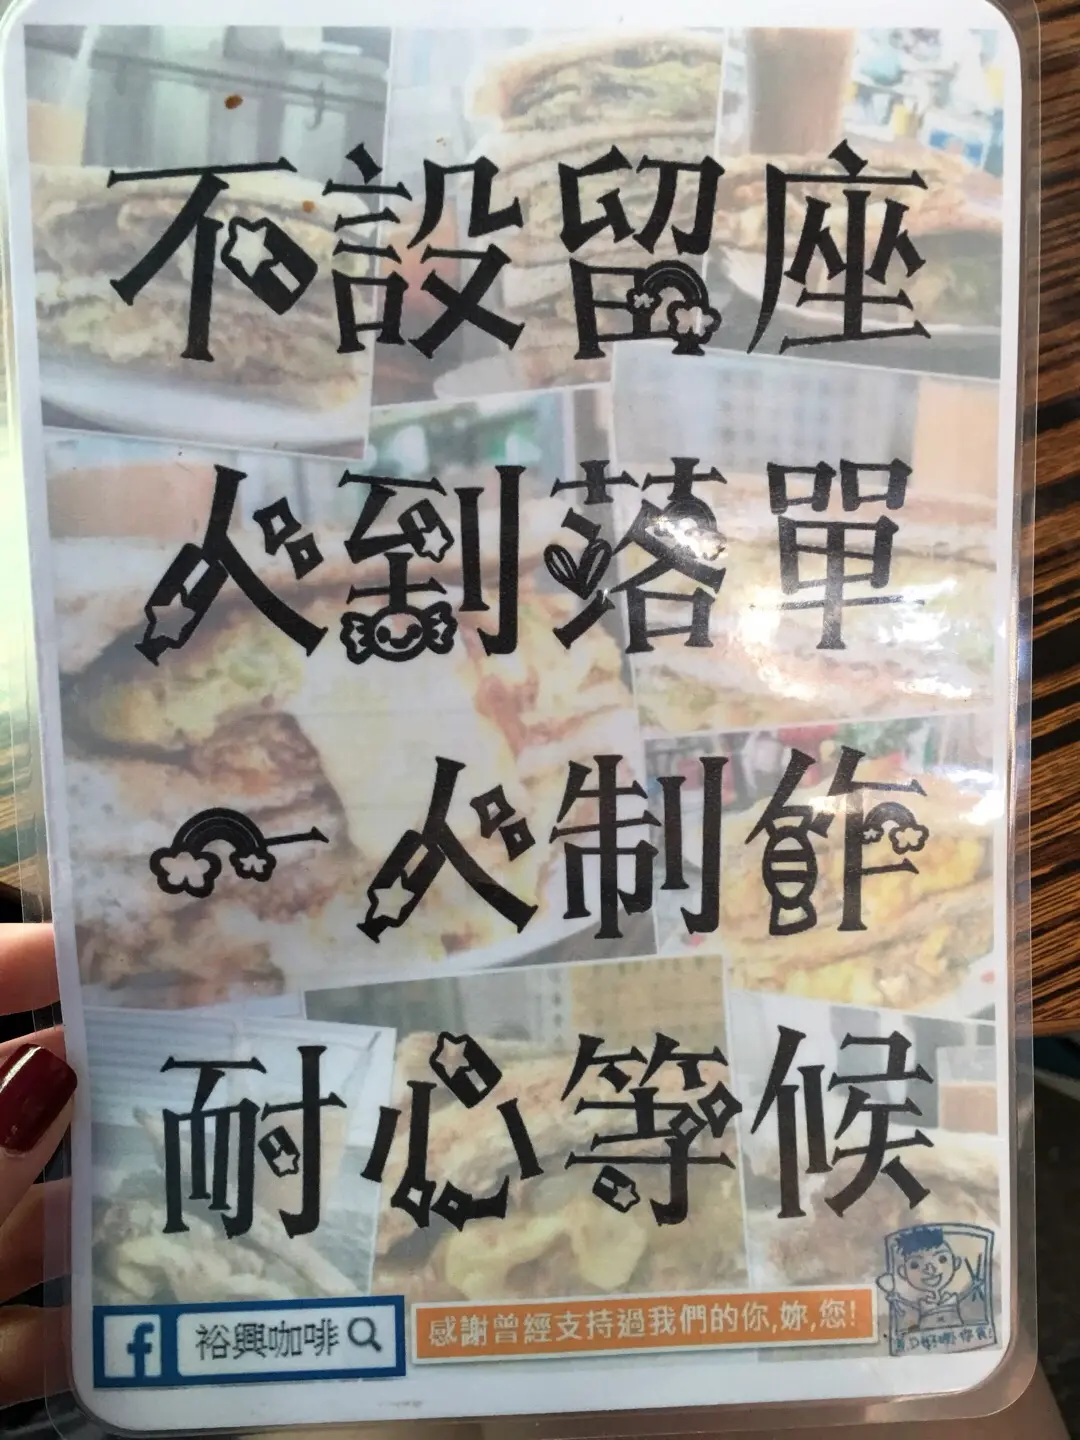 不設留座
人到落單
一人制飵
耐心等候
裕興咖啡
感謝曾經支持過我們的你,妳,您!